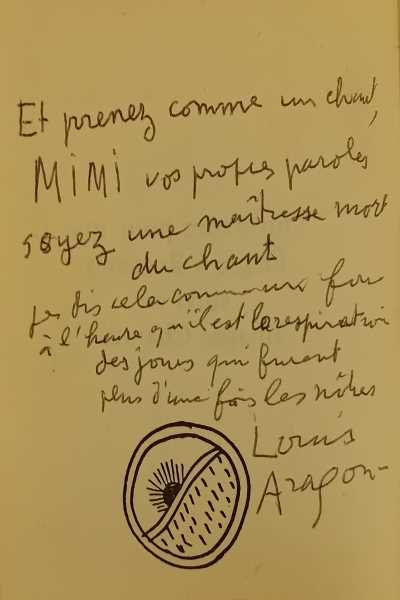 Et prenez comme un chant,
MIMI vos propres paroles
soyez une maîtresse mort
du chant
je dis cela comme un fou
à l'heure qu'il est la respiration
des jours qui furent
plus d'une fois les nôtres
Louis
Aragon